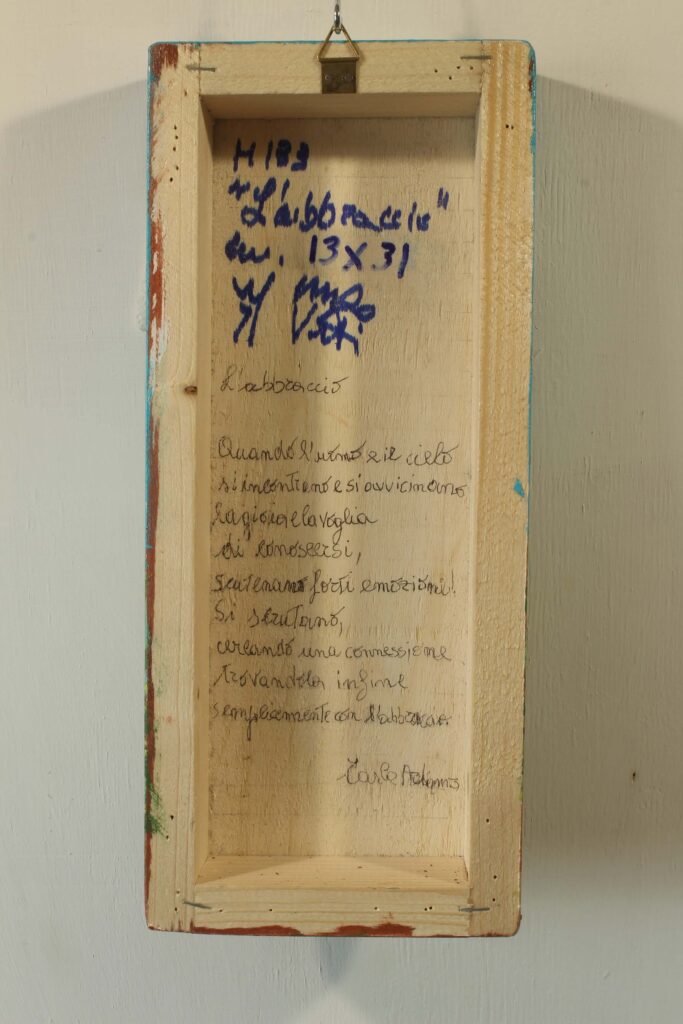 "L'abbraccio"
cm. 13 x 31
L'abbraccio
Quando l'uomo e il cielo
si incontrano e si avvicinano
la gioia e la voglia
di conoscersi,
scatenano forti emozioni!
Si scrutano,
creando una connessione
trovandola infine
semplicemente con l'abbraccio.